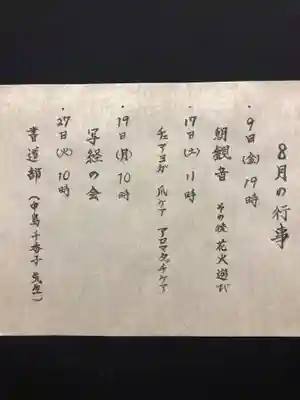 8月の行事
・9日(金)19時
朝観音 その後 花火遊び
・17日(土)11時
チェアヨガ 爪ケア アロマタッチケア
・19日(月)10時
写経の会
・27日(火)10時
書道部(中島千香子先生)